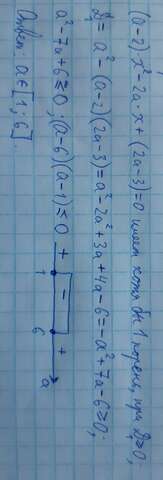 (a-2)x²-2a·x+(2a-3)=0 имеет хотя бы 1 корень, при D≥0;
D = a²-(a-2)(2a-3)=a²-2a²+3a+4a-6=-a²+7a-6≥0;
a²-7a+6≤0; (a-6)(a-1)≤0
+ - +
1 6 a
Ответ: a∈[1;6]